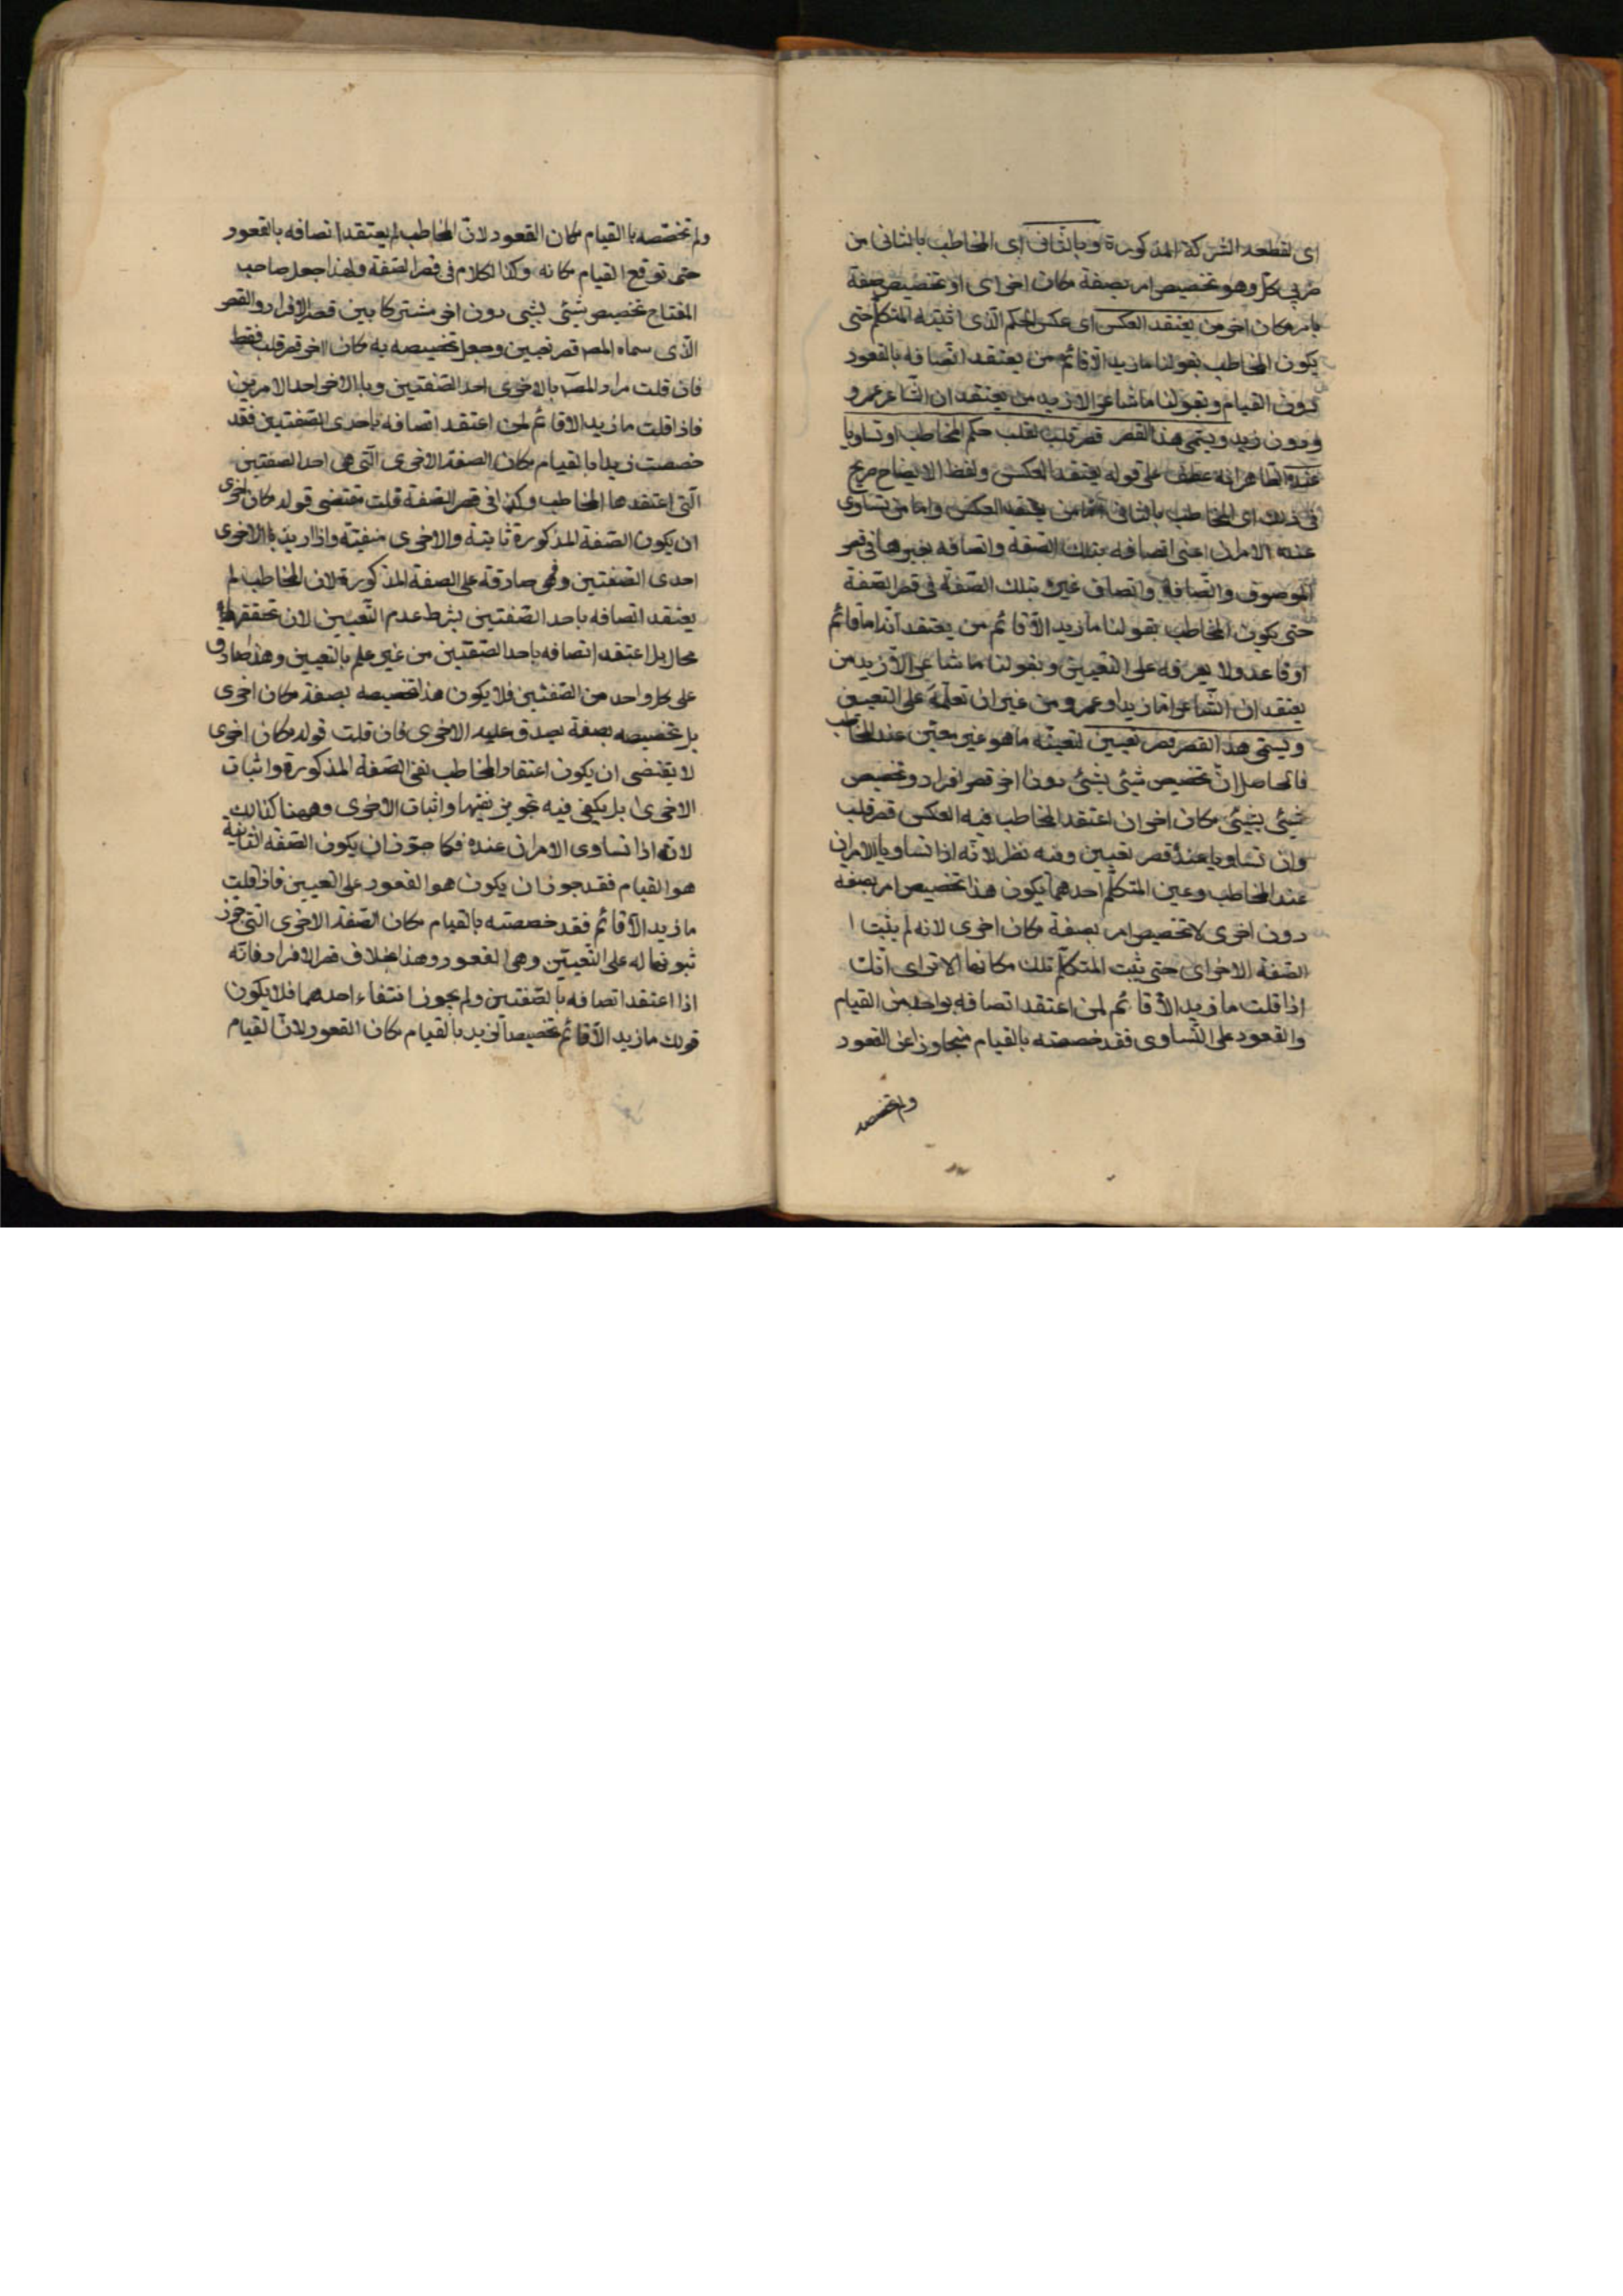 اى لقطعه الشركة المذكورة وبالثانى اى المخاطب بالثانى من
ضربى كل وهو تخصيص امر بصفة مكان اخراى او تخصيص صفة
بامر مكان اخر من يعتقد العكس اى عكس الحكم الذى اثبته المتكلم حتى
يكون المخاطب بقولنا ما زيد الا قائم من يعتقد اتصافه بالقعود
دون القيام وبقولنا ما شاعر الا زيد من يعتقد ان الشاعر عمرو
ودون زيد ويسمى هذا القصر قصر قلب لقلب حكم المخاطب او تساويا
عنده الظاهر انه عطف على قوله يعتقد العكس ولفظ الايضاح صريح
فى ذلك اى المخاطب بالثانى اما من يعتقد العكس واما من تساوى
عنده الامران اعنى اتصافه بتلك الصفة واتصافه بغيرها فى قصر
الموصوف واتصافه واتصاف غيره بتلك الصفة فى قصر الصفة
حتى يكون المخاطب بقولنا ما زيد الا قائم من يعتقد انه اما قائم
او قاعد ولا يعرفه على التعيين وبقولنا ما شاعر الا زيد من
يعتقد ان الشاعر اما زيد او عمرو من غير ان تعلمه على التعيين
ويسمى هذا القصر قصر تعيين لتعيينه ما هو غير معين عند المخاطب
فالحاصل ان تخصيص شيئ بشيئ دون اخر قصر افراد وتخصيص
شيئ بشيئ مكان اخر ان اعتقد المخاطب فيه العكس قصر قلب
وان تساويا عنده قصر تعيين وفيه نظر لانه اذا تساويا الامران
عند المخاطب وعين المتكلم احدهما يكون هذا تخصيص امر بصفة
دون اخرى لا تخصيص امر بصفة مكان اخرى لانه لم يثبت ا
الصفة الاخراى حتى يثبت المتكلم تلك مكانها الا تراى انك
اذا قلت ما زيد الا قائم لمن اعتقد اتصافه بواحد من القيام
والقعود على التساوى فقد خصصته بالقيام متجاوزا عن القعود
ولم تخصصه
ولم تخصصه باالقيام مكان القعود لان المخاطب لم يعتقد اتصافه بالقعود
حتى توقع القيام مكانه وكذا الكلام فى قصر الصفة ولهذا جعل صاحب
المفتاح تخصيص شيئ بشيى دون اخر مشتركا بين قصر الافراد والقصر
الذى سماه المصه قصر تعيين وجعل تخصيصه به مكان اخر قصر قلب فقط
فان قلت مراد المصه بالاخرى احد الصفتين وباالاخر احد الامرين
فاذا قلت ما زيد الا قائم لمن اعتقد اتصافه باحدى الصفتين فقد
خصصت زيدا بالقيام مكان الصفة الاخرى التى هى احد الصفتين
التى اعتقدها المخاطب وكذا فى قصر الصفة قلت مقتضى قوله مكان اخرى
ان يكون الصفة المذكورة ثابتة والاخرى منفية واذا اريد باالاخرى
احدى الصفتين وهى صادقة على الصفة المذكورة لان المخاطب لم
يعتقد اتصافه باحد الصفتين بشرط عدم التعيين لان تحققها
محال بل اعتقد اتصافه باحد الصفتين من غير علم بالتعيين وهذا صادق
على كل واحد من الصفتين فلا يكون هذا تخصيصه بصفة مكان اخرى
بل تخصيصه بصفة يصدق عليه الاخرى فان قلت قوله مكان اخرى
لا يقتضى ان يكون اعتقاد المخاطب نفى الصفة المذكورة واثبات
الاخرى بل يكفى فيه تجويز نفيها واثبات الاخرى وههنا كذالك
لانه اذا تساوى الامران عنده فكما جوز ان يكون الصفة الثانية
هو القيام فقد جوز ان يكون هو القعود على التعيين فاذا قلت
ما زيد الا قائم فقد خصصته بالقيام مكان الصفة الاخرى التى جوز
ثبوتها له على التعيين وهى القعود وهذا بخلاف قصر الافراد فانه
اذا اعتقد اتصافه بالصفتين ولم يجوز انتفاء احدهما فلا يكون
قولك ما زيد الا قائم تخصيصا لزيد بالقيام مكان القعود لان القيام